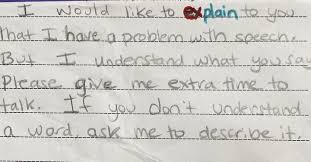 I would like to explain to you
that I have a problem with speech.
But I understand what you say
Please give me extra time to
talk. If you don't understand
a word, ask me to describe it.